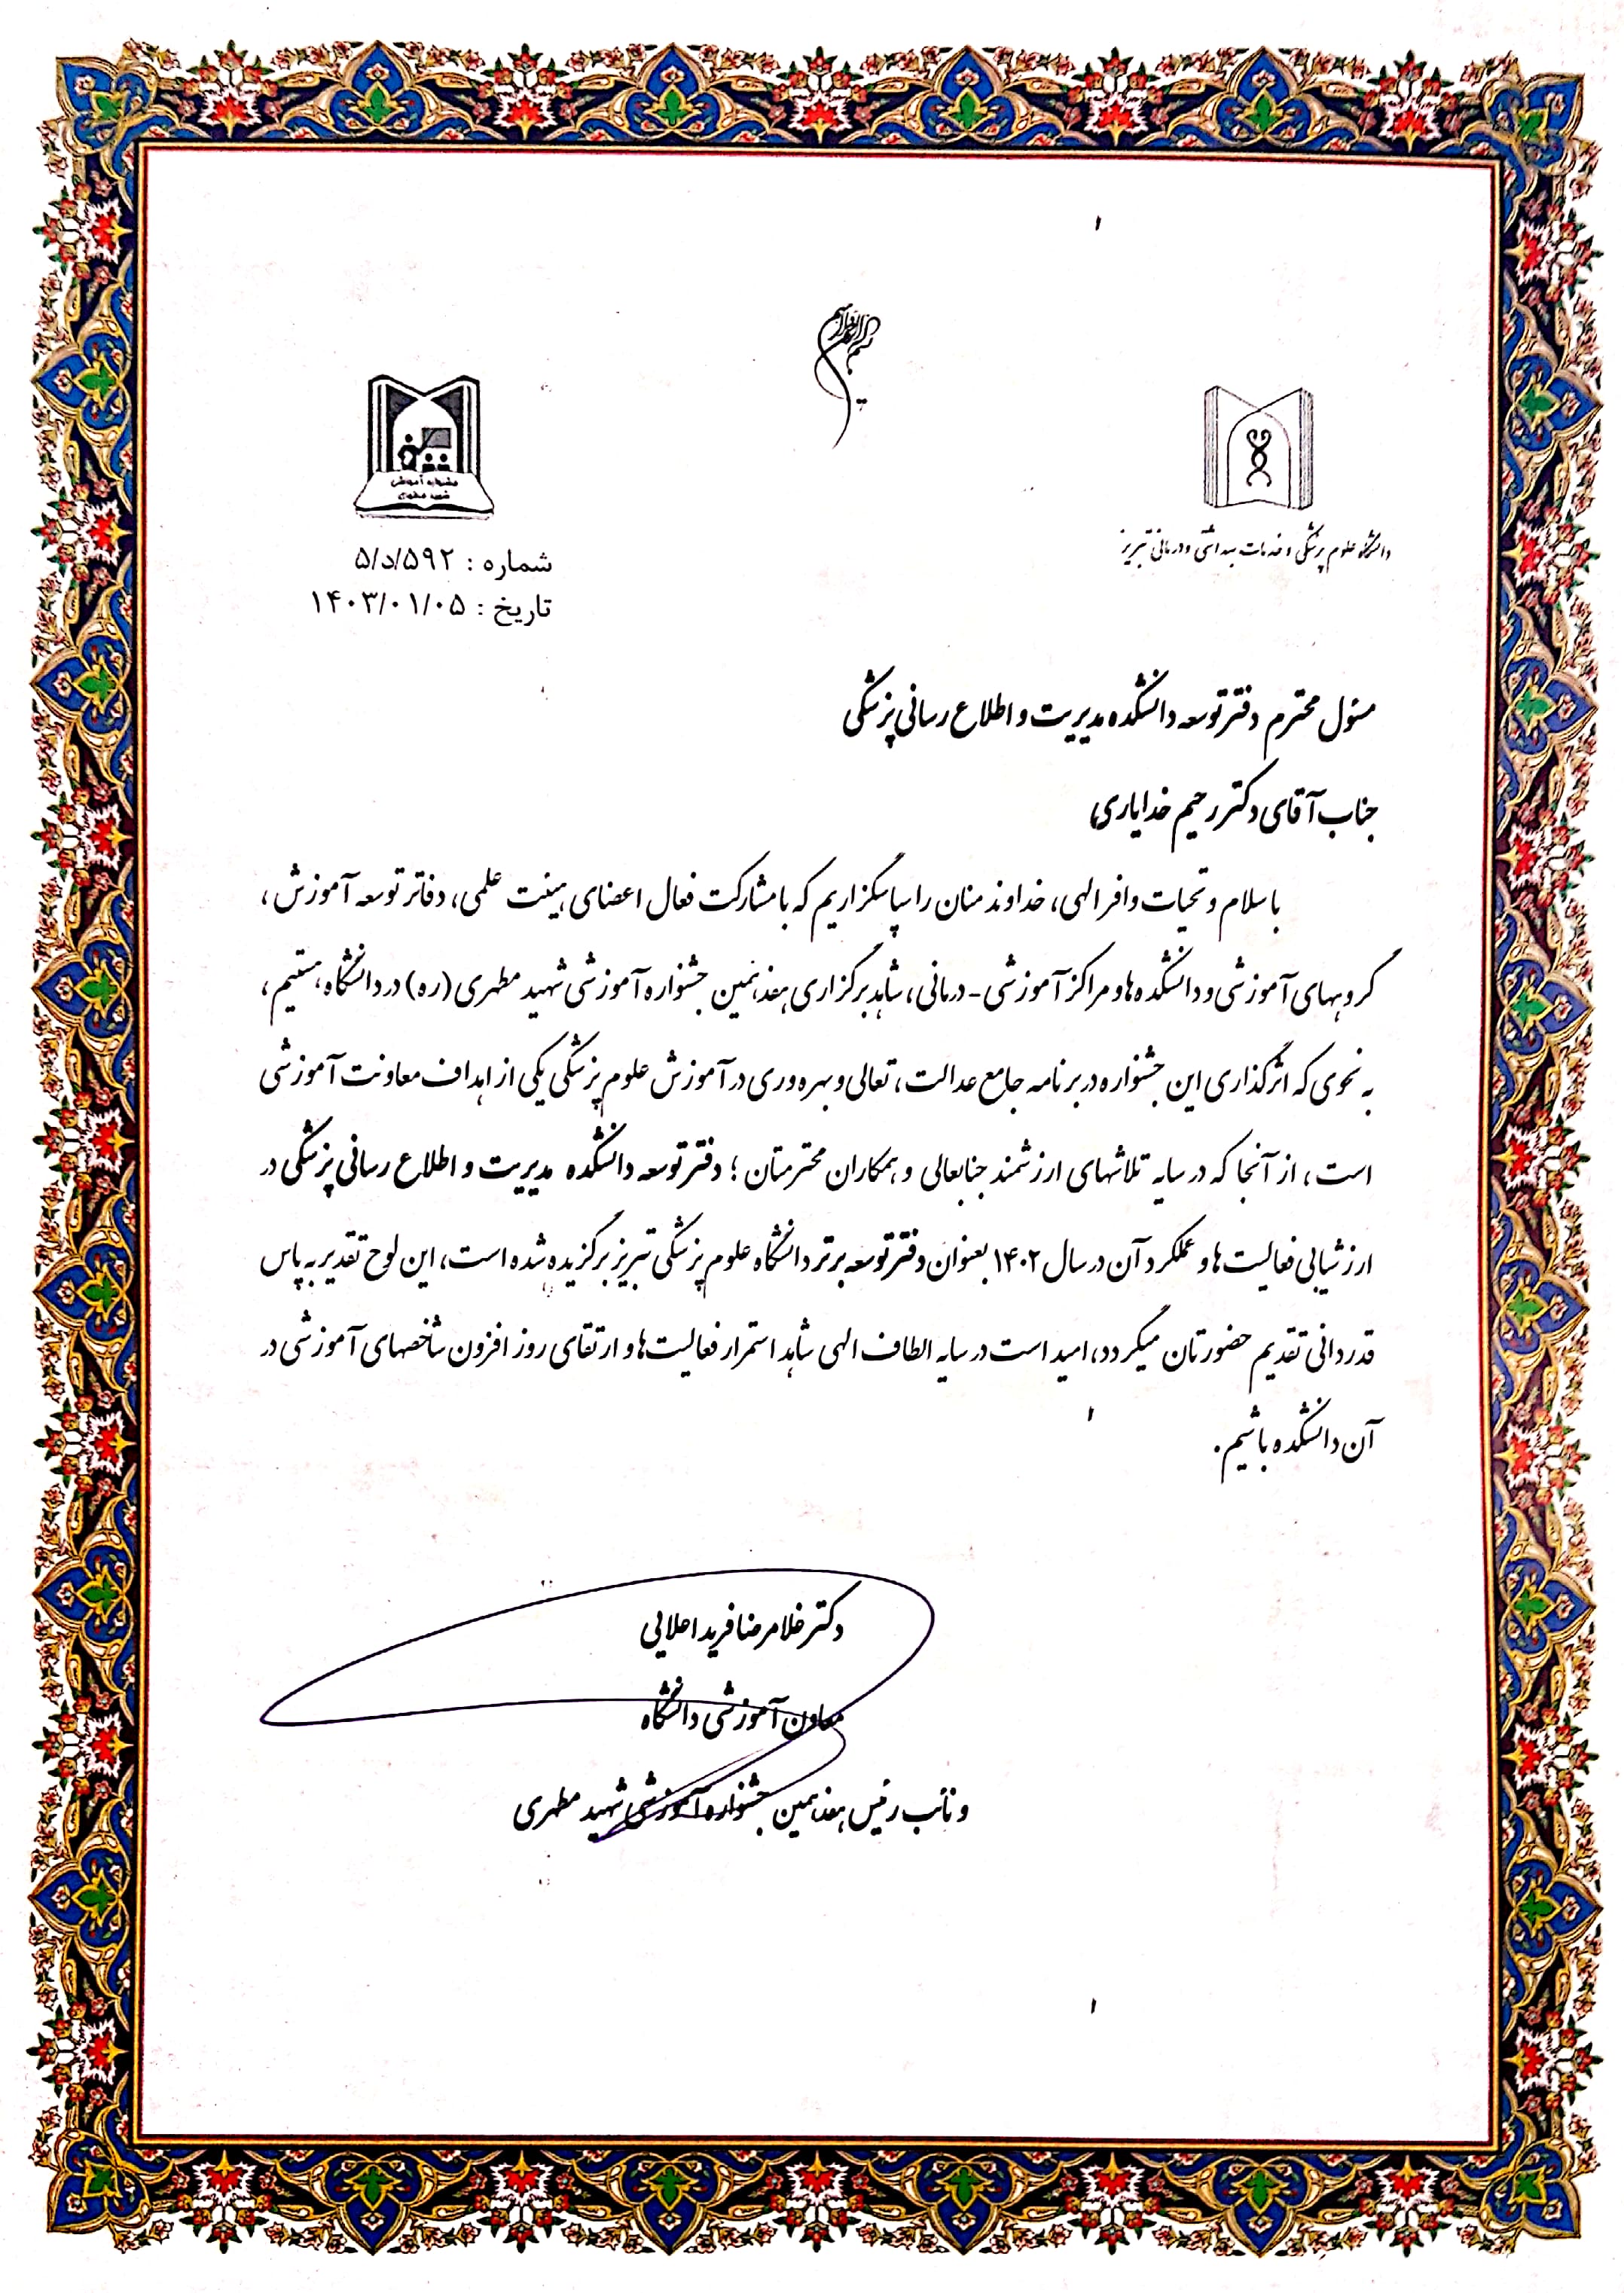 بسم الله الرحمن الرحیم
دانشگاه علوم پزشکی و خدمات بهداشتی و درمانی تبریز
جشنواره آموزشی
شهید مطهری
شماره : ۵/د/۵۹۲
تاریخ : ۱۴۰۳/۰۱/۰۵
مسئول محترم دفتر توسعه دانشکده مدیریت و اطلاع رسانی پزشکی
جناب آقای دکتر رحیم خدایاری
با سلام و تحیات وافر الهی، خداوند منان را سپاسگزاریم که با مشارکت فعال اعضای هیئت علمی، دفاتر توسعه آموزش ،
گروههای آموزشی و دانشکده ها و مراکز آموزشی- درمانی، شاهد برگزاری هفدهمین جشنواره آموزشی شهید مطهری (ره) در دانشگاه، هستیم ،
به نحوی که اثرگذاری این جشنواره در برنامه جامع عدالت، تعالی و بهره وری در آموزش علوم پزشکی یکی از اهداف معاونت آموزشی
است، از آنجا که در سایه تلاشهای ارزشمند جنابعالی و همکاران محترمتان ؛ دفتر توسعه دانشکده مدیریت و اطلاع رسانی پزشکی در
ارزشیابی فعالیت ها و عملکرد آن در سال ۱۴۰۲ بعنوان دفتر توسعه برتر دانشگاه علوم پزشکی تبریز برگزیده شده است، این لوح تقدیر به پاس
قدردانی تقدیم حضورتان میگردد، امید است در سایه الطاف الهی شاهد استمرار فعالیت ها و ارتقای روز افزون شاخصهای آموزشی در
آن دانشکده باشیم.
دکتر غلامرضا فرید اعلایی
معاون آموزشی دانشگاه
و نائب رئیس هفدهمین جشنواره آموزشی شهید مطهری